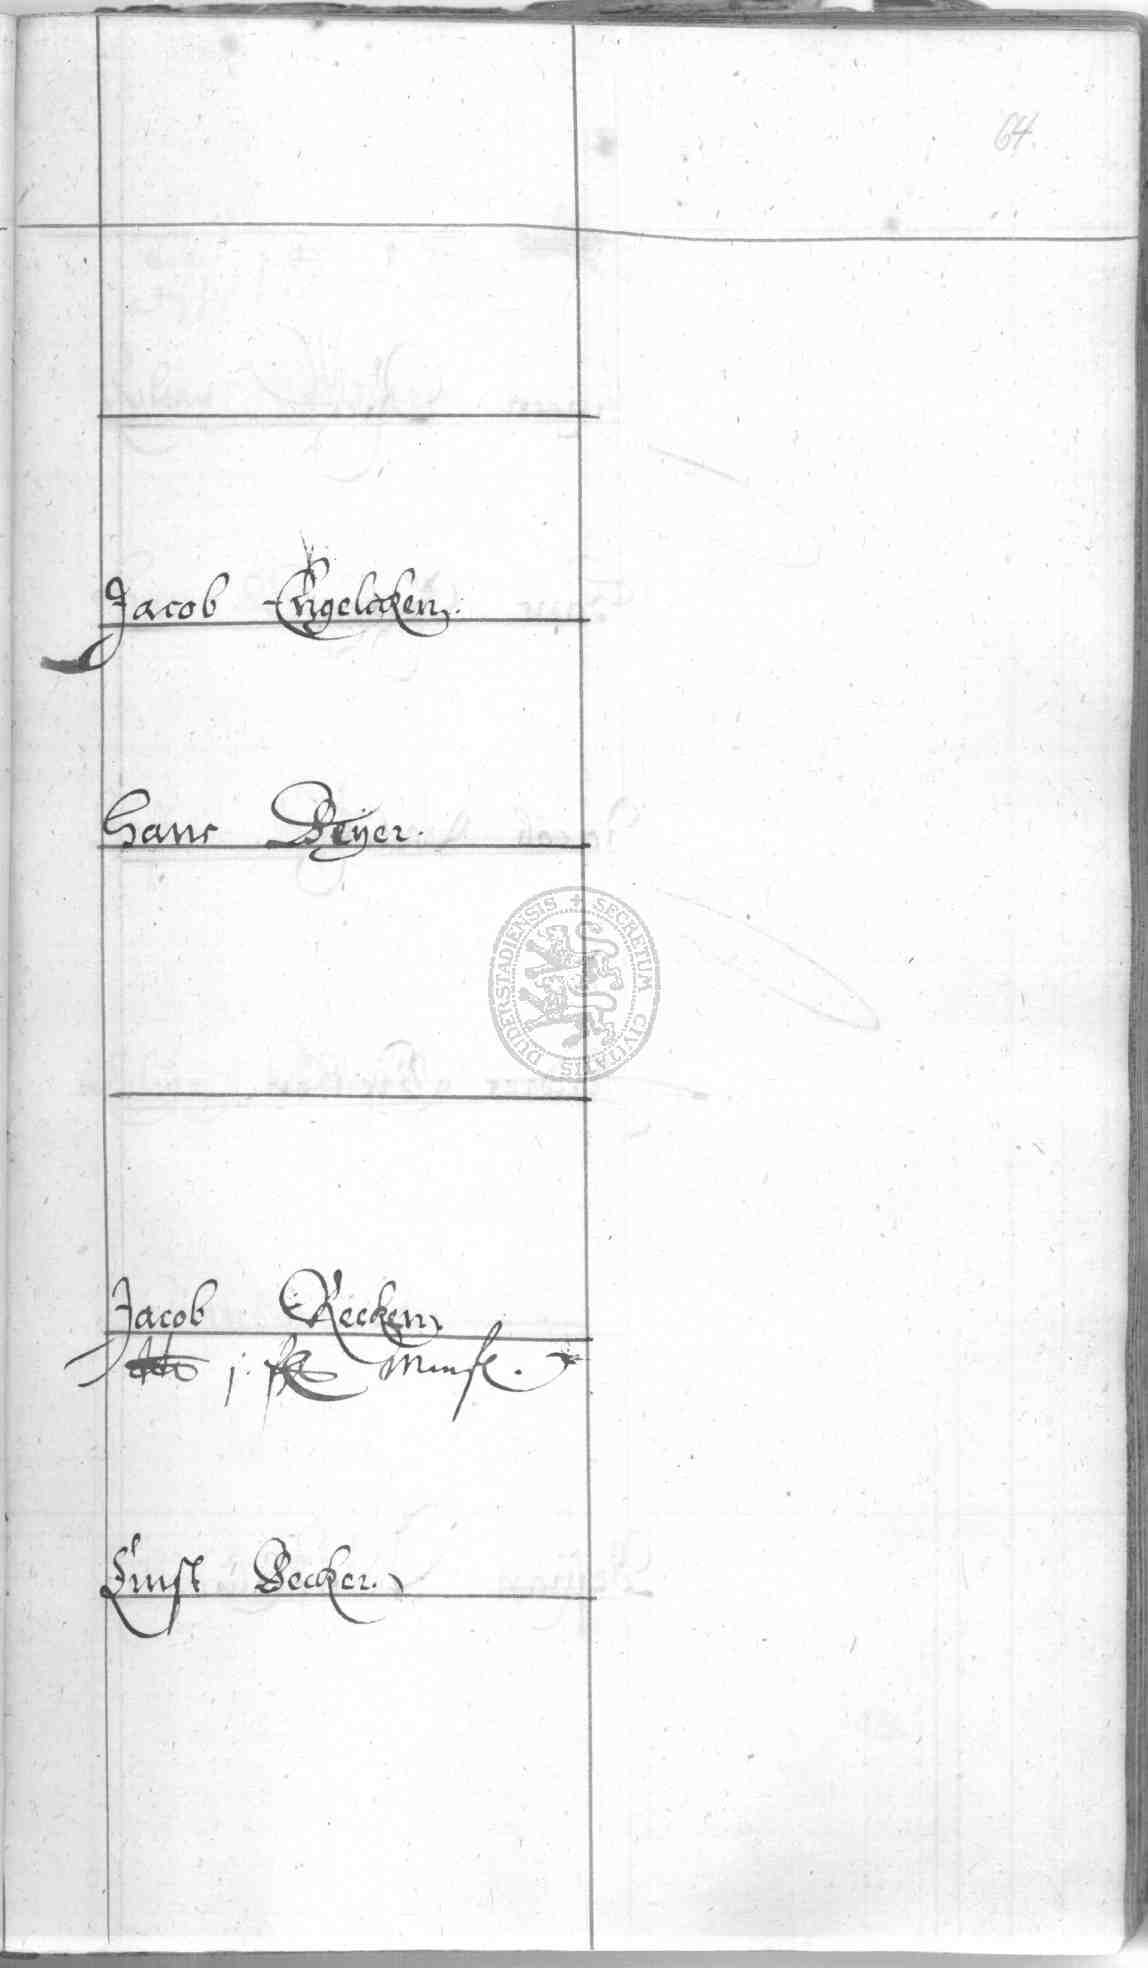 64.
Jacob Engelcken.
Hans Beyer.
SECRETUM CIVITATIS DUDERSTADIENSIS
Jacob Recken
j.
Ernst Becker.